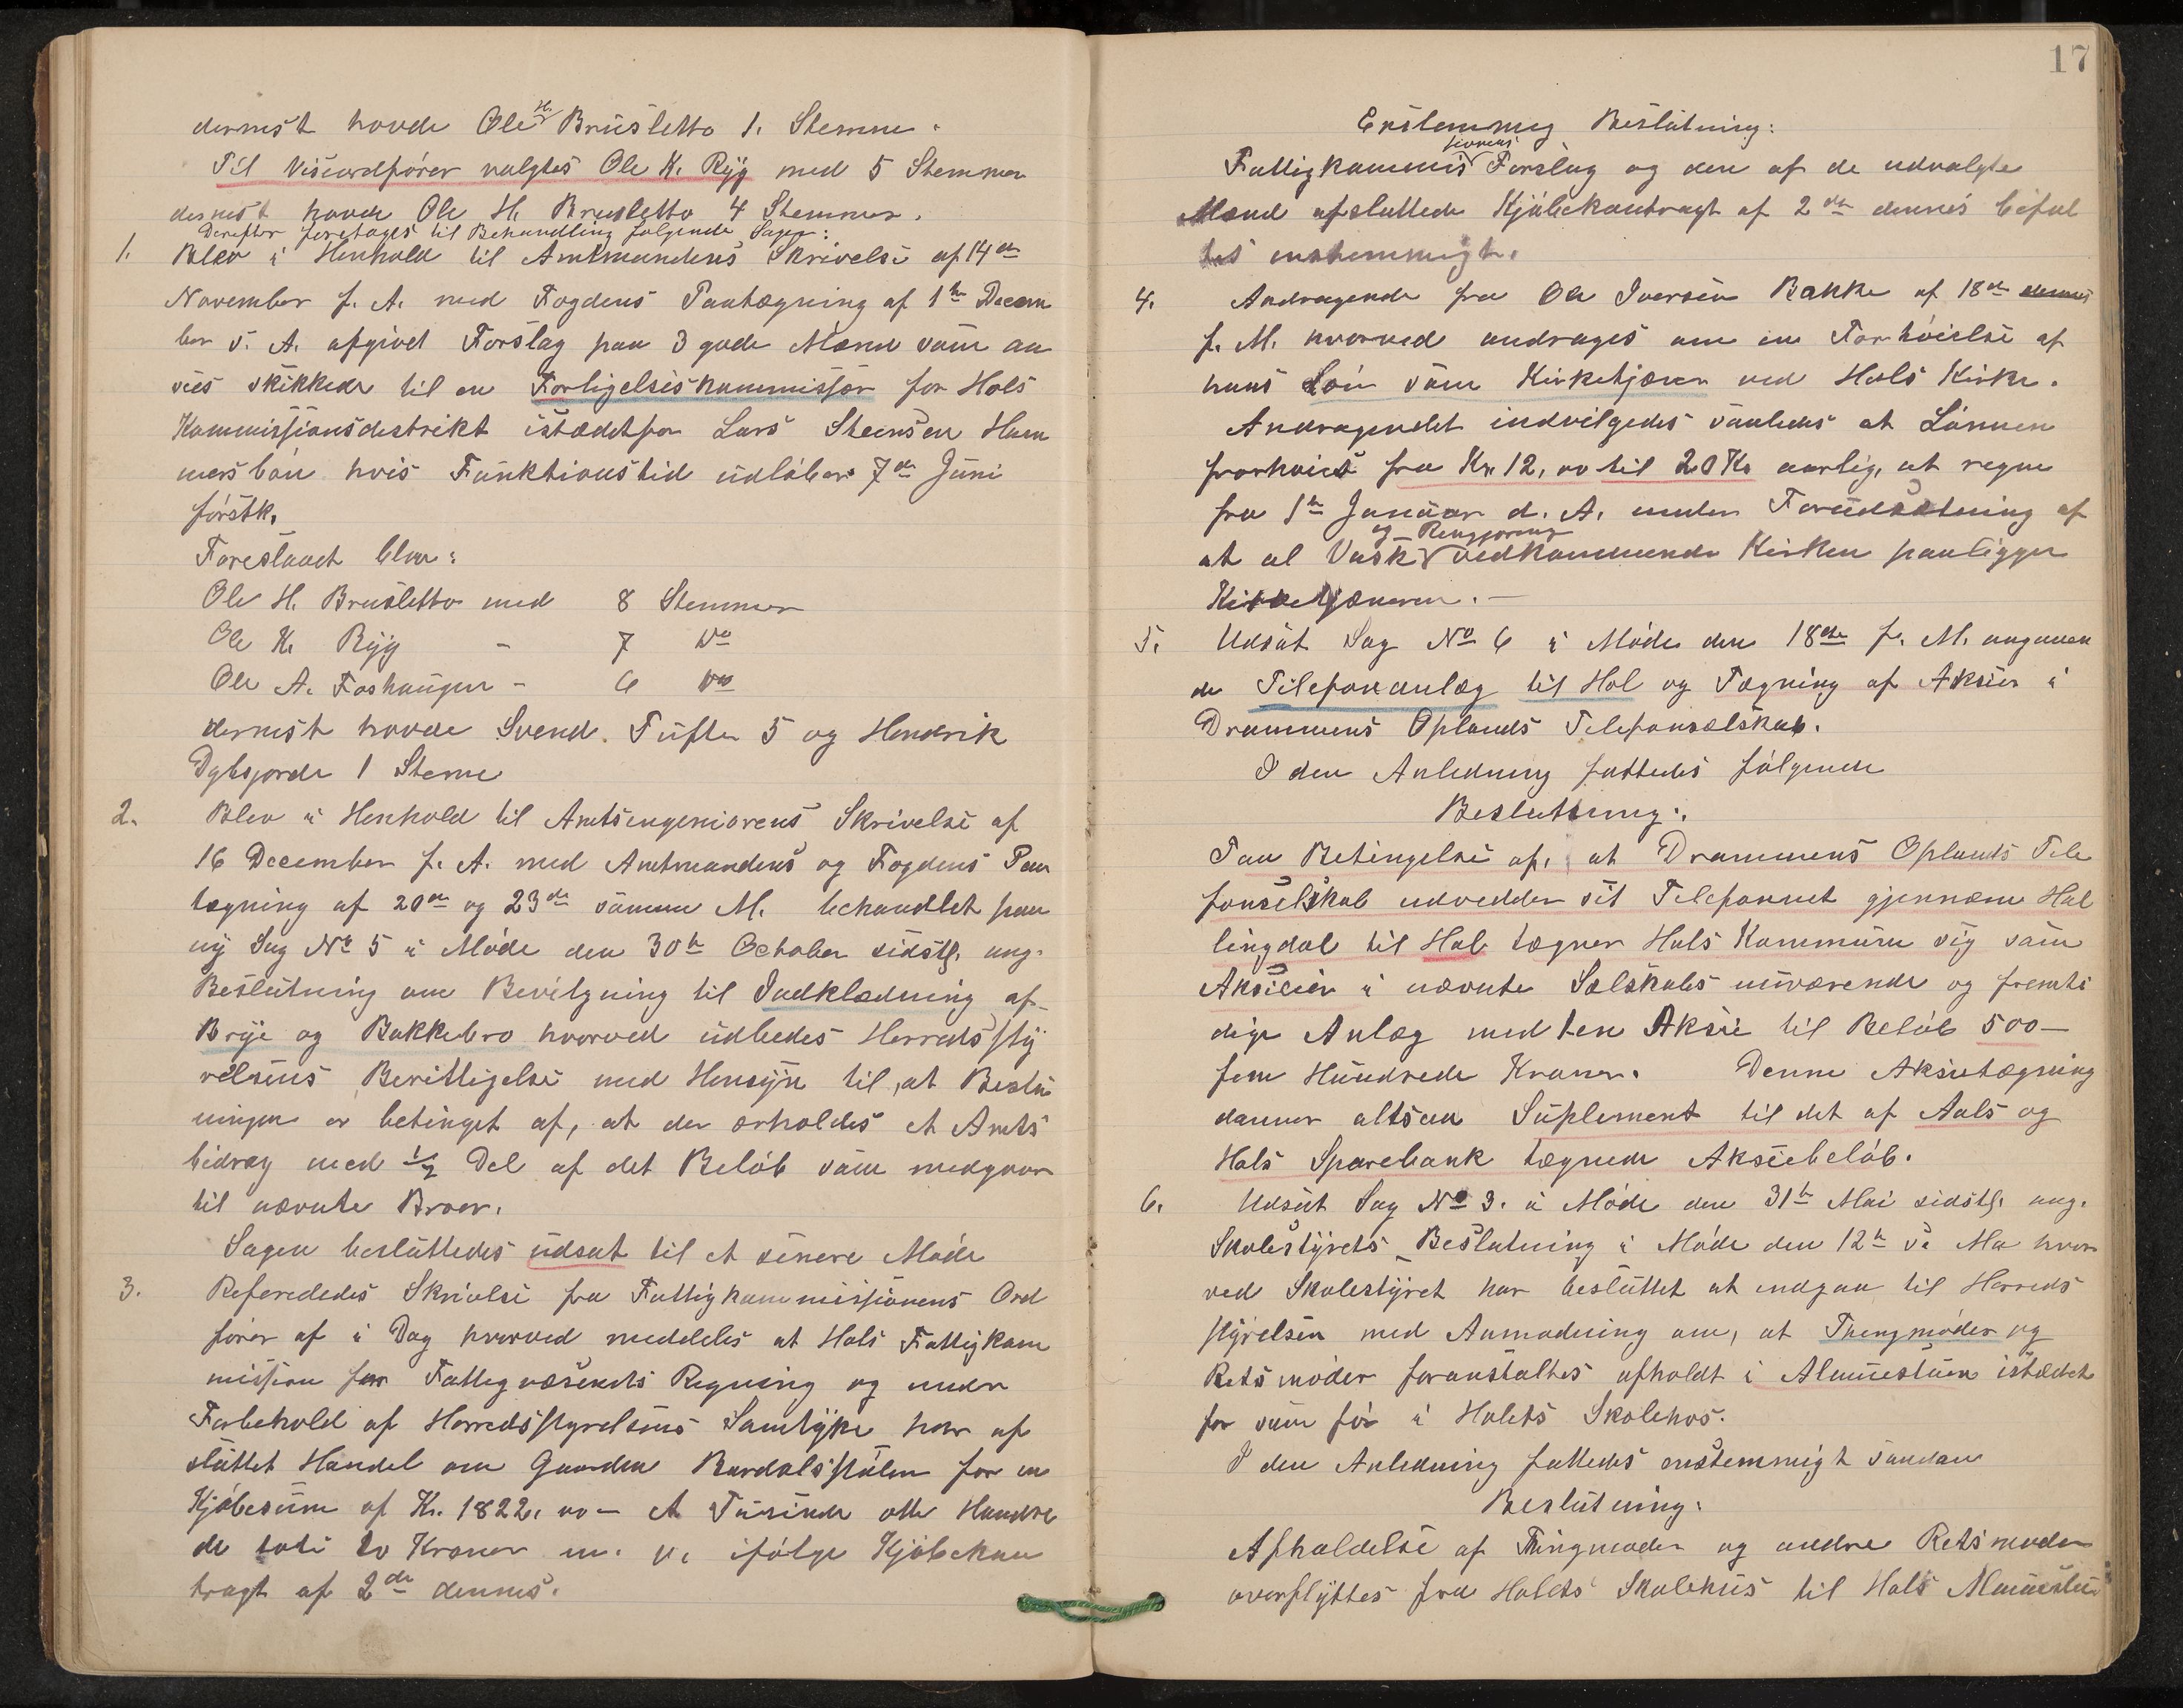 dernest havde Ole H. Brusletto 1. Stemme.
Til Viseordfører valgtes Ole K. Ryg med 5 Stemmer
dernest havde Ole H. Brusletto 4 Stemmer.
Derefter foretages til Behandling følgende Sager:
1. Blev i Henhold til Amtmandens Skrivelse af 14de
November f. A. med Fogdens Paategning af 1te Decem
ber s. A. afgivet Forslag paa 3 gode Mænd som an
sees skikkede til en Forligelseskommissær for Hols
Kommissionsdistrikt istædetfor Lars Steensen Ham
mersbøn hvis Funktionstid udløber 7de Juni
førstk.
Foreslaaet blev:
Ole H. Brusletto med 8 Stemmer
Ole K. Ryg - 7 Do
Ole A. Foshaugen - 6 Do
dernest havde Svend Tufte 5 og Hendrik
Dybsjorde 1 Steme
2. Blev i Henhold til Amtsingeniørens Skrivelse af
16 December f. A. med Amtmandens og Fogdens Paa
tægning af 20de og 23de samme M. behandlet paa
ny Sag No 5 i Møde den 30te October sidstl. ang.
Beslutning om Bevilgning til Indklædning af
Brye og Bakkebro hvorved udbedes Herredssty
relsens Berettigelse med Hensyn til, at Beslu
ningen er betinget af, at der erholdes et Amts
bidrag med 1/2 Del af det Beløb som medgaar
til nævnte Broer.
Sagen besluttedes udsat til et senere Møde
3. Refereredes Skrivelse fra Fattigkommissionens Ord
fører af i Dag hvorved meddeles at Hols Fattigkom
mission for Fattigvæsenets Regning og under
Forbehold af Herredsstyrelsens Samtykke har af
sluttet Handel om Gaarden Bardalsstølen for en
Kjøbesum af Kr. 1822.00 - Et Tusinde otte Hundre
de toti to Kroner m. v. ifølge Kjøbekon
tragt af 2de dennes.
17
Enstemmig Beslutning:
Fattigkommissionens Forslag og den af de udvalgte
Mænd afsluttede Kjøbekontragt af 2de dennes bifal
tes enstemmigt.
4. Andragende fra Ole Iversen Bakke af 18de dennes
f. M. hvorved andrages om en Forhøielse af
hans Løn som Kirketjæner ved Hols Kirke.
Andragendet indvilgedes saaledes at Lønnen
forhøies fra Kr. 12,00 til 20 Kr aarlig, at regne
fra 1te Januar d. A. under Forudsætning af
at al Vask og Rengjøring vedkommende Kirken paaligger
Kirketjæneren. -
5. Udsat Sag No 6 i Møde den 18de f. M. angaaen
de Telefonanlæg til Hol og Tægning af Aksier i
Drammens Oplands Telefonselskab.
I den Anledning fattedes følgende
Beslutning:
Paa Betingelse af, at Drammens Oplands Tele
fonselskab udvedder sit Telefonnet gjennem Hal
lingdal til Hol tegner Hols Kommune sig som
Aksieeier i nævnte Selskabs nuværende og fremti
dige Anlæg med ten Aksie til Beløb 500 -
fem Hundrede Kroner. Denne Aksietægning
danner altsaa Suplement til det af Aals og
Hols Sparebank tægnede Aksiebeløb.
6. Udsat Sag No 3. i Møde den 31te Mai sidstl. ang.
Skolestyrets Beslutning i Møde den 12te s. Ma hvor
ved Skolestyret har besluttet at indgaa til Herreds
styrelsen med Anmodning om, at Thingmøder og
Retsmøder foranstaltes afholdt i Almuestuen istædet
for som før i Holets Skolehus.
I den Anledning fattedes enstemmigt saadan
Beslutning:
Afholdelse af Tingmøder og andre Retsmøder
overflyttes fra Holets Skolehus til Hols Almuestue